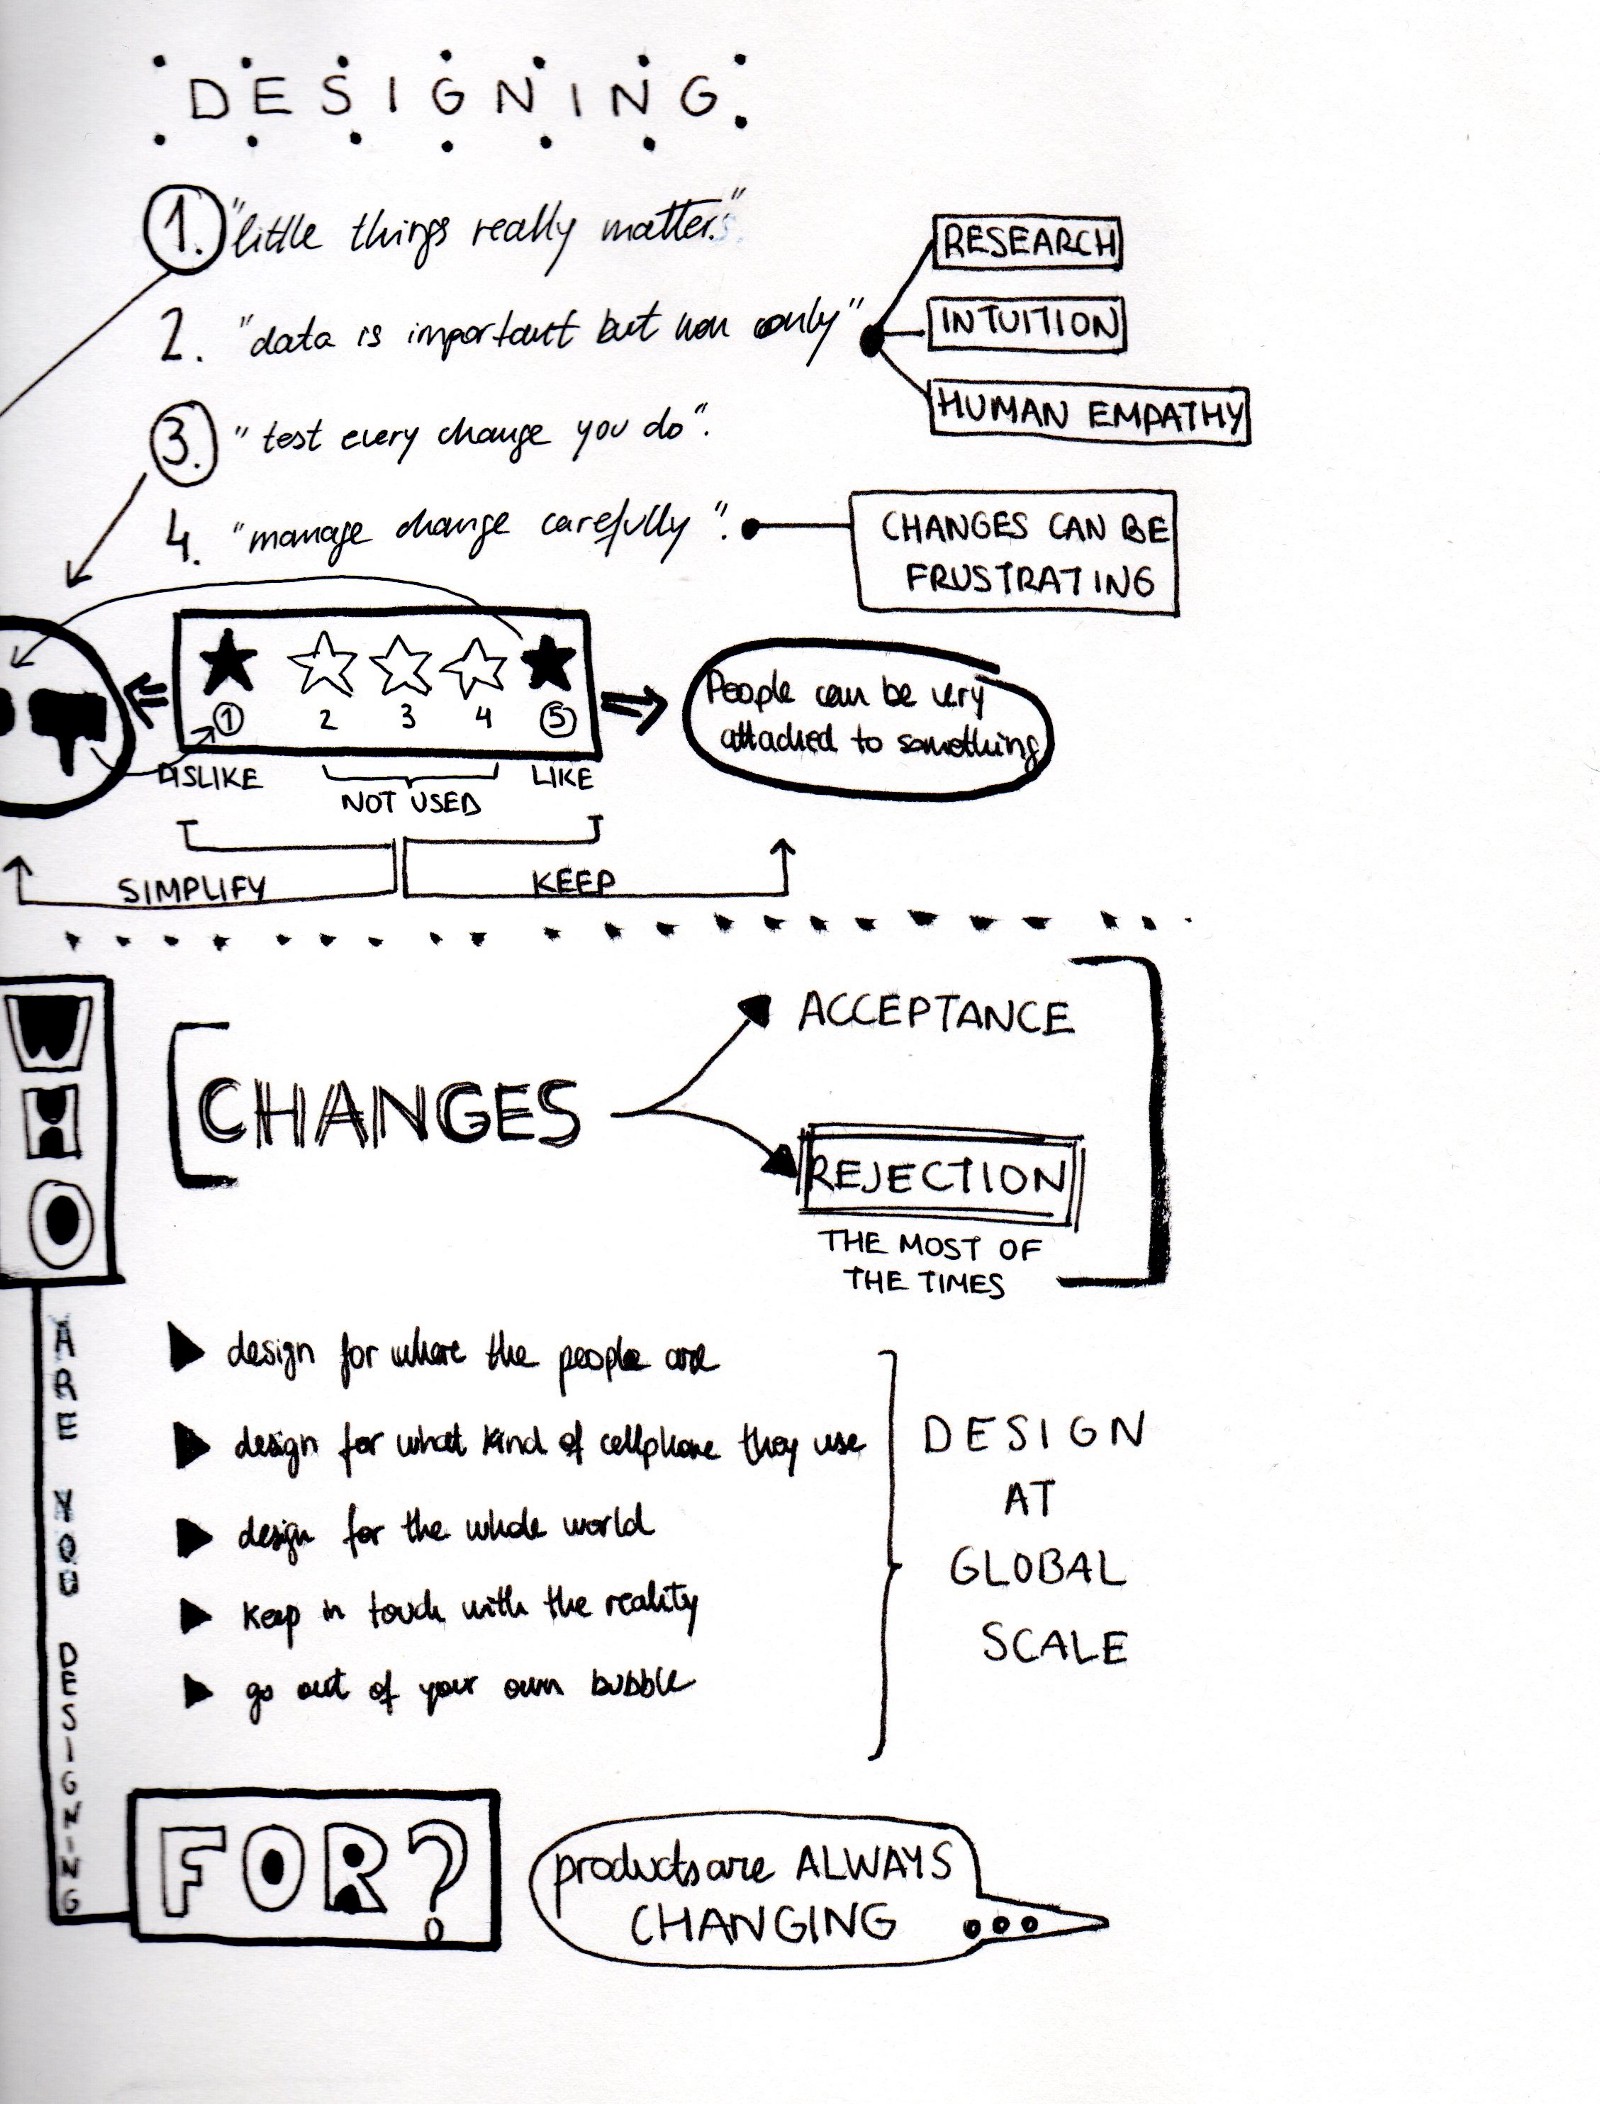 DESIGNING
1. "little things really matter."
2. "data is important but non only"
RESEARCH
INTUITION
HUMAN EMPATHY
3. "test every change you do".
4. "manage change carefully".
CHANGES CAN BE
FRUSTRATING
1 2 3 4 5
DISLIKE
NOT USED
LIKE
People can be very
attached to something
SIMPLIFY
KEEP
CHANGES
ACCEPTANCE
REJECTION
THE MOST OF
THE TIMES
WHO
ARE YOU DESIGNING
FOR?
design for where the people are
design for what kind of cellphone they use
design for the whole world
keep in touch with the reality
go out of your own bubble
DESIGN
AT
GLOBAL
SCALE
products are ALWAYS
CHANGING